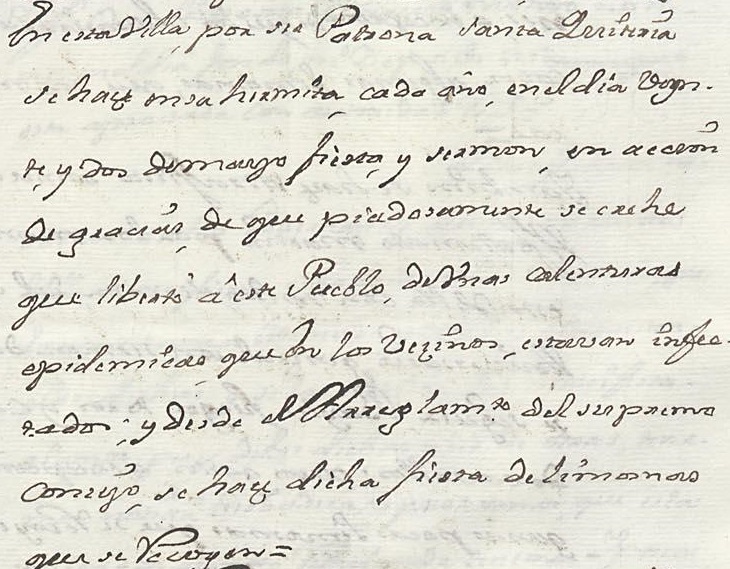 En esta Villa, por su Patrona Santa Quiteria
se haze en su hermita, cada año, en el dia veyn-
te, y dos de mayo fiesta, y sermon, en accion
de gracias, de que piadosamente se crehe
que liberto â este Pueblo, de Unas calenturas
epidemicas, que en los Vezinos, estavan infec-
tados; y desde el Arreglamto del supremo
Consejo, se haze dicha fiesta de limosnas
que se Recoxen =